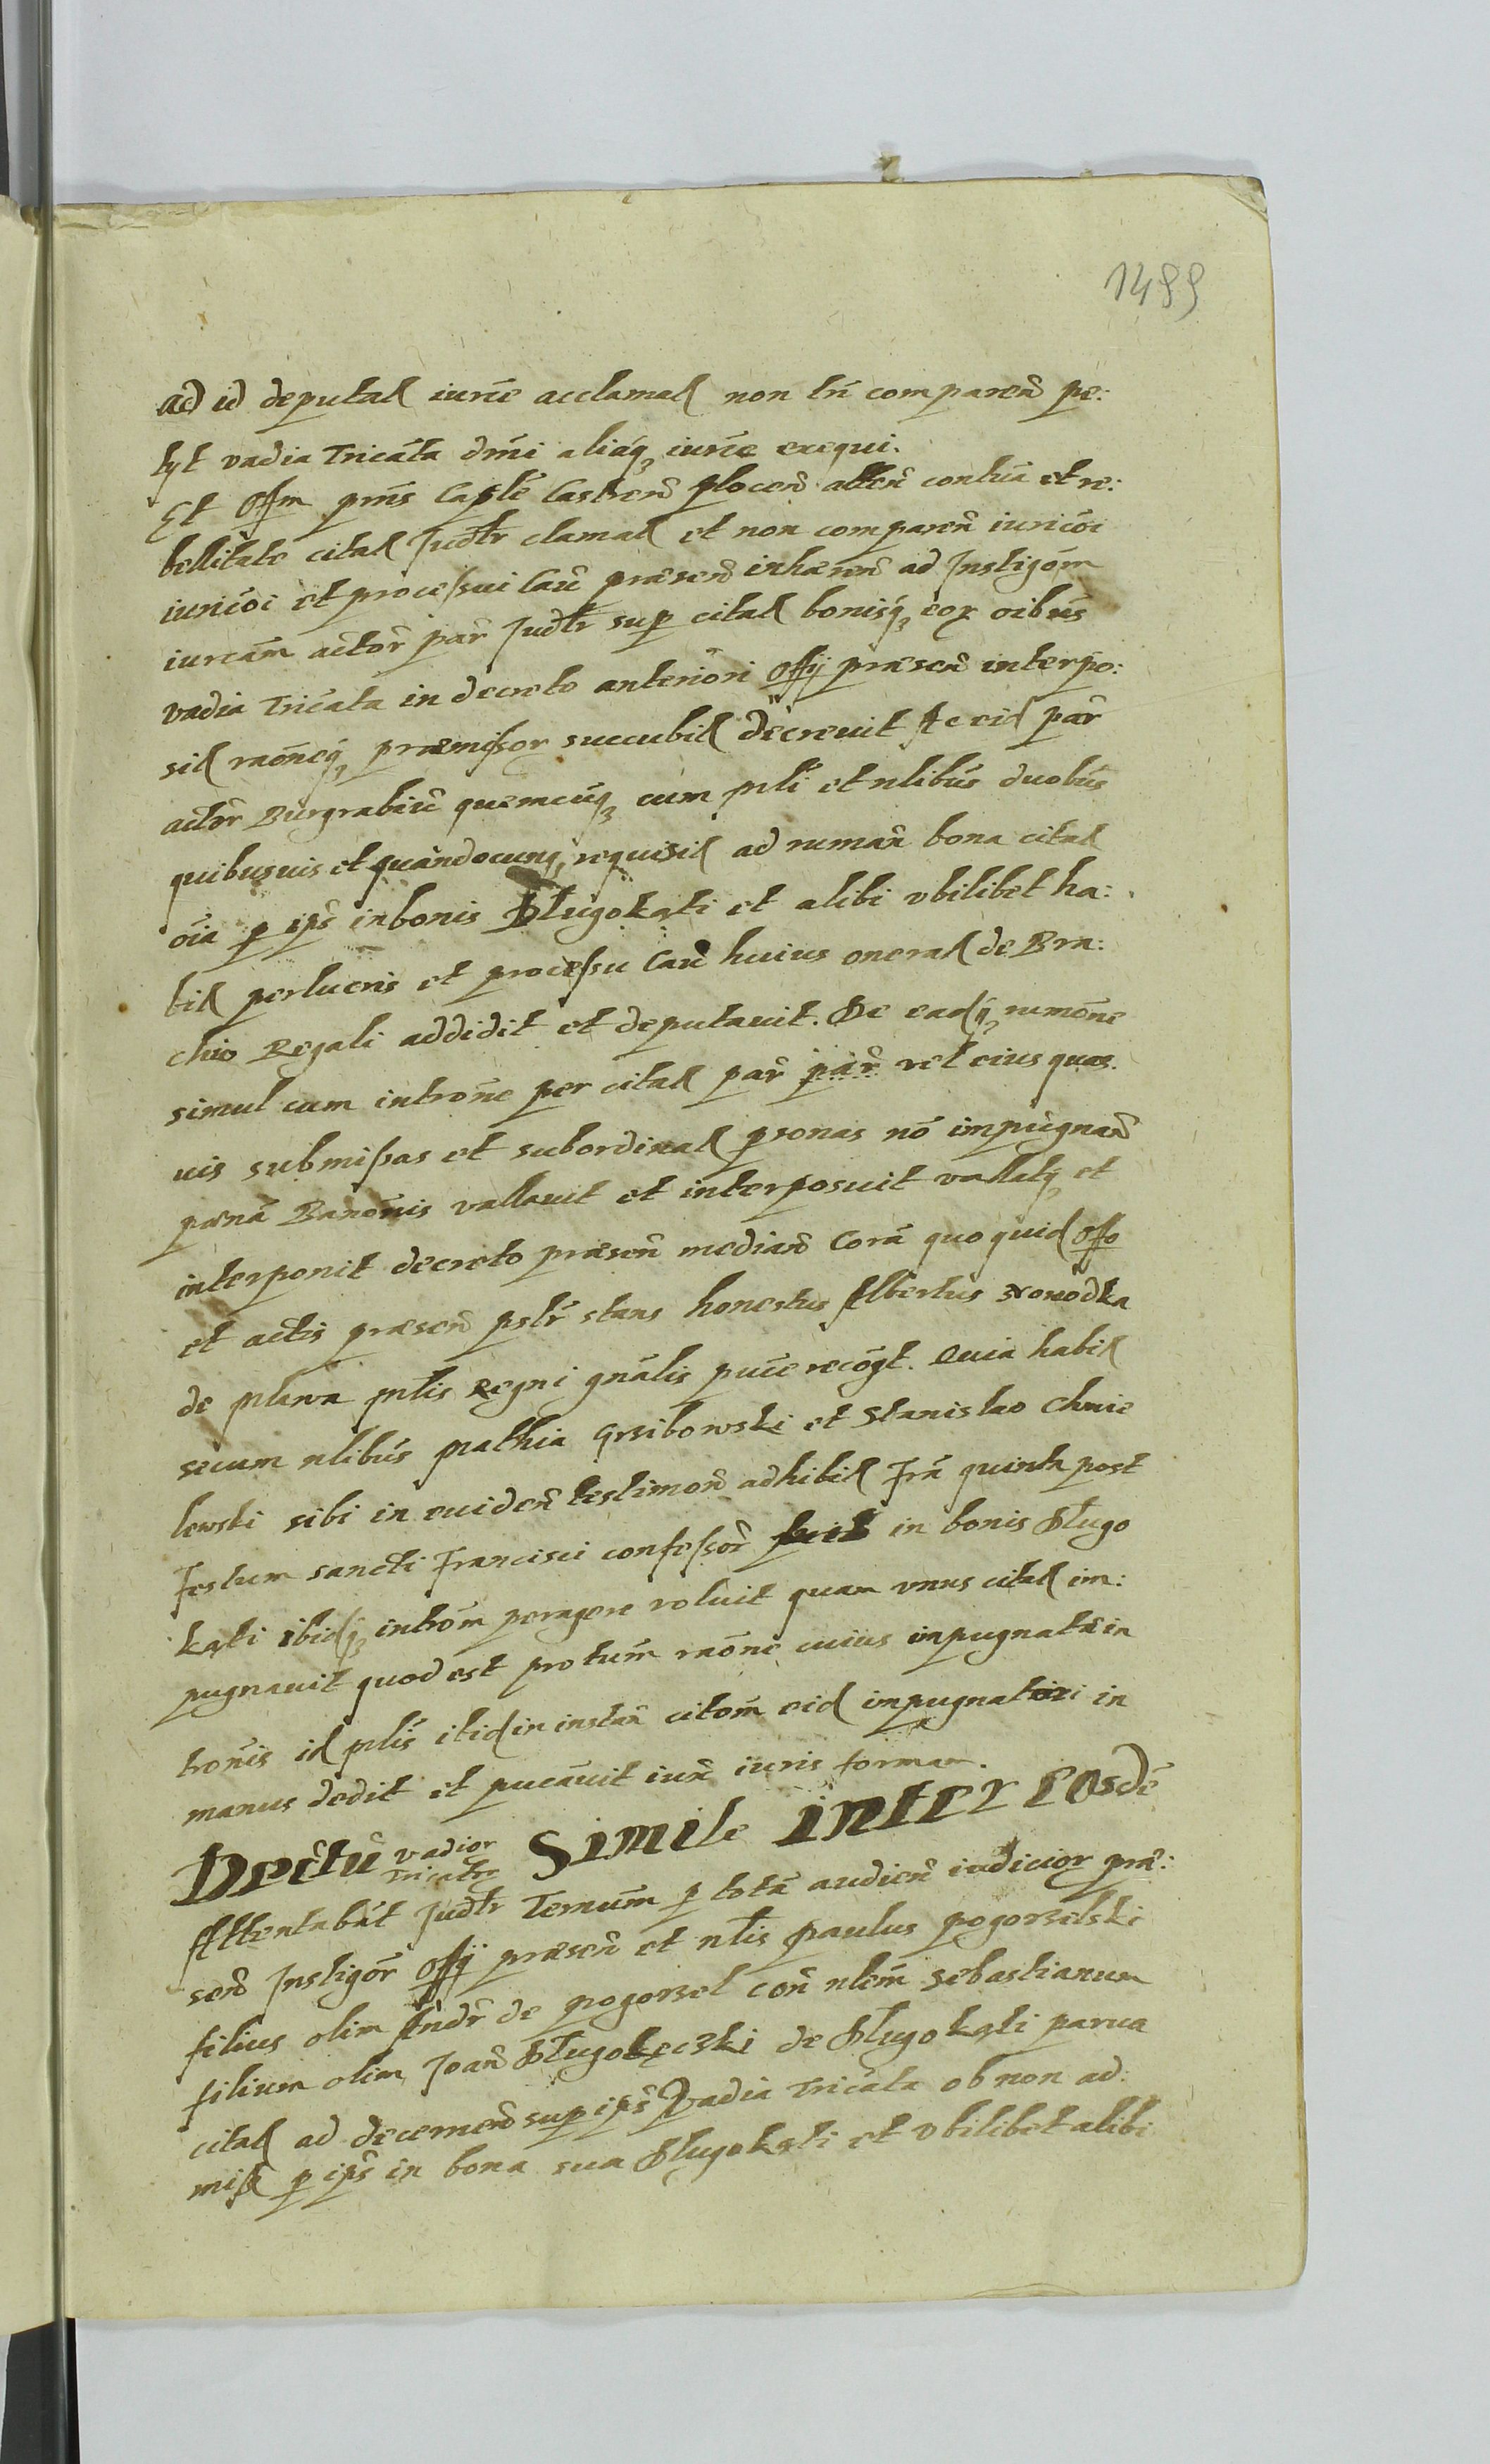 1499
ad id deputat iurie acclamat non tn̄ comparen̄ pe:
tyt vadia Tricata d̄ni aliaq₃ iurie exequi.
Et Offm p̄ns Capt̄le Castren̄ plocen̄ atten̄ contu͞a et re:
bellitate citat Jud̄tr clamat et non comparen̄ iuricoi
iuricoi et processui Caū præsen̄ inhæren̄ ad Instigōm
iurcam actor̄ par̄ Jud̄tr sup citat bonisq₃ eor oibus
vadia Tricata in decreto anteriori Offy præsen̄ interpo:
sit raōneq₃ præmissor succubit decreuit Ac eid par̄
actor̄ Burgrabiū quemcuq₃ cum mli et nlibus duobus
quibusuis et quandocunq₃ requisit ad ruman̄ bona citat
oīa p ip̄s in bonis Długokąti et alibi vbilibet ha:
bit perlucris et processu Caū huius onerat de Bra:
chio Regali addidit et deputauit. De eadq₃ rumōne
simul cum introne per citat par̄ par̄ vel eius quas
uis submissas et subordinat psonas nō impugnan̄
pænā Banōnis vallauit et interposuit vallatq₃ et
interponit decreto præsen̄ median̄ Corā quo quid Offo
et actis præsen̄ pslr̄ stans honestus Albertus Nouodka
de mlawa mlis Regni gnālis puce recog̃t. Quia habit
secum nlibus mathia Grzibowski et Stanislao Chmie
lewski sibi in euiden̄ testimon̄ adhibit Frā quinta post
Festum sancti Francisci confessor̄ in bonis Długo
kąti ibidq₃ introm peragere voluit quam vnus citat im:
pugnauit quod est protum̄ raōne cuius impugnatæ in
tronis id mlis itid in instan̄ citom̄ eid impugnatori in
manus dedit et pucauit iux̄ iuris formam.
Decrtū vadior Tricator Simile inter Eosdē
Attentabāt Jud̄tr Ternum̄ p totā audien̄ iudicior præ:
sen̄ Instigōr Offy præsen̄ et nlis Paulus pogorzelski
filius olim Andr̄ de pogorzel Con̄ nlem̄ Sebastianum
filium olim Joan̄ Długokęczki de Długokąti parua
citat ad decernen̄ sup ip̄s Vadia Tricata ob non ad:
miss p ip̄s in bona sua Długokąti et vbilibet alibi